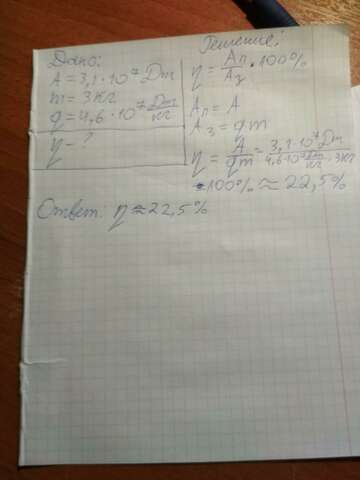 Дано:
A = 3,1 · 10⁷ Дж
m = 3 кг
q = 4,6 · 10⁷ Дж/кг
η - ?
Решение:
η = Aп/Aз · 100%
Aп = A
Aз = qm
η = A/qm = 3,1 · 10⁷ Дж/4,6 · 10⁷ Дж/кг · 3 кг
· 100% ≈ 22,5%
Ответ: η ≈ 22,5%